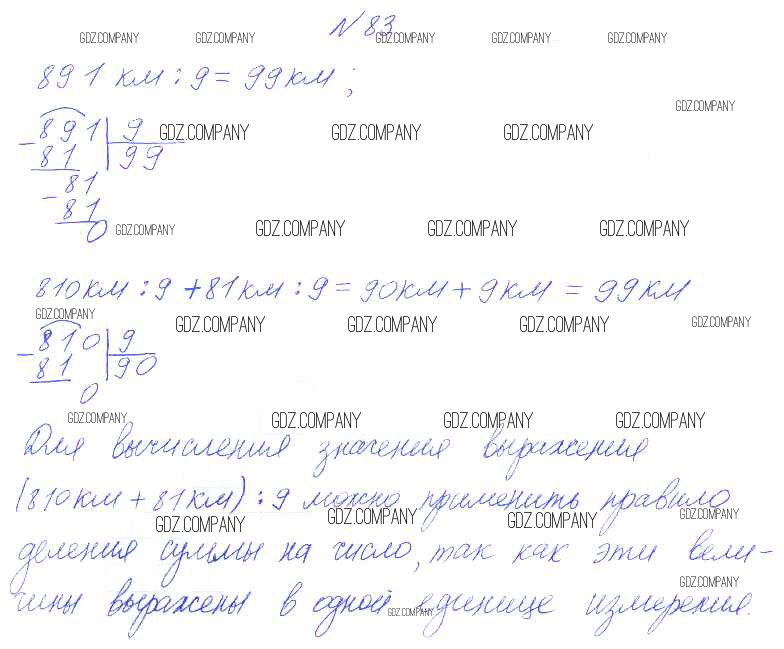 № 83
GDZ.COMPANY GDZ.COMPANY GDZ.COMPANY GDZ.COMPANY GDZ.COMPANY
891 км : 9 = 99 км ;
GDZ.COMPANY
- 891 | 9
GDZ.COMPANY GDZ.COMPANY GDZ.COMPANY
81 | 99
81
- 81
0
GDZ.COMPANY GDZ.COMPANY GDZ.COMPANY GDZ.COMPANY
810 км : 9 + 81 км : 9 = 90 км + 9 км = 99 км
GDZ.COMPANY GDZ.COMPANY GDZ.COMPANY GDZ.COMPANY GDZ.COMPANY
- 810 | 9
81 | 90
0
GDZ.COMPANY GDZ.COMPANY GDZ.COMPANY GDZ.COMPANY
Для вычисления значения выражения
(810 км + 81 км) : 9 можно применить правило
GDZ.COMPANY GDZ.COMPANY GDZ.COMPANY GDZ.COMPANY
деления суммы на число, так как эти вели-
GDZ.COMPANY
чины выражены в одной единице измерения.
GDZ.COMPANY